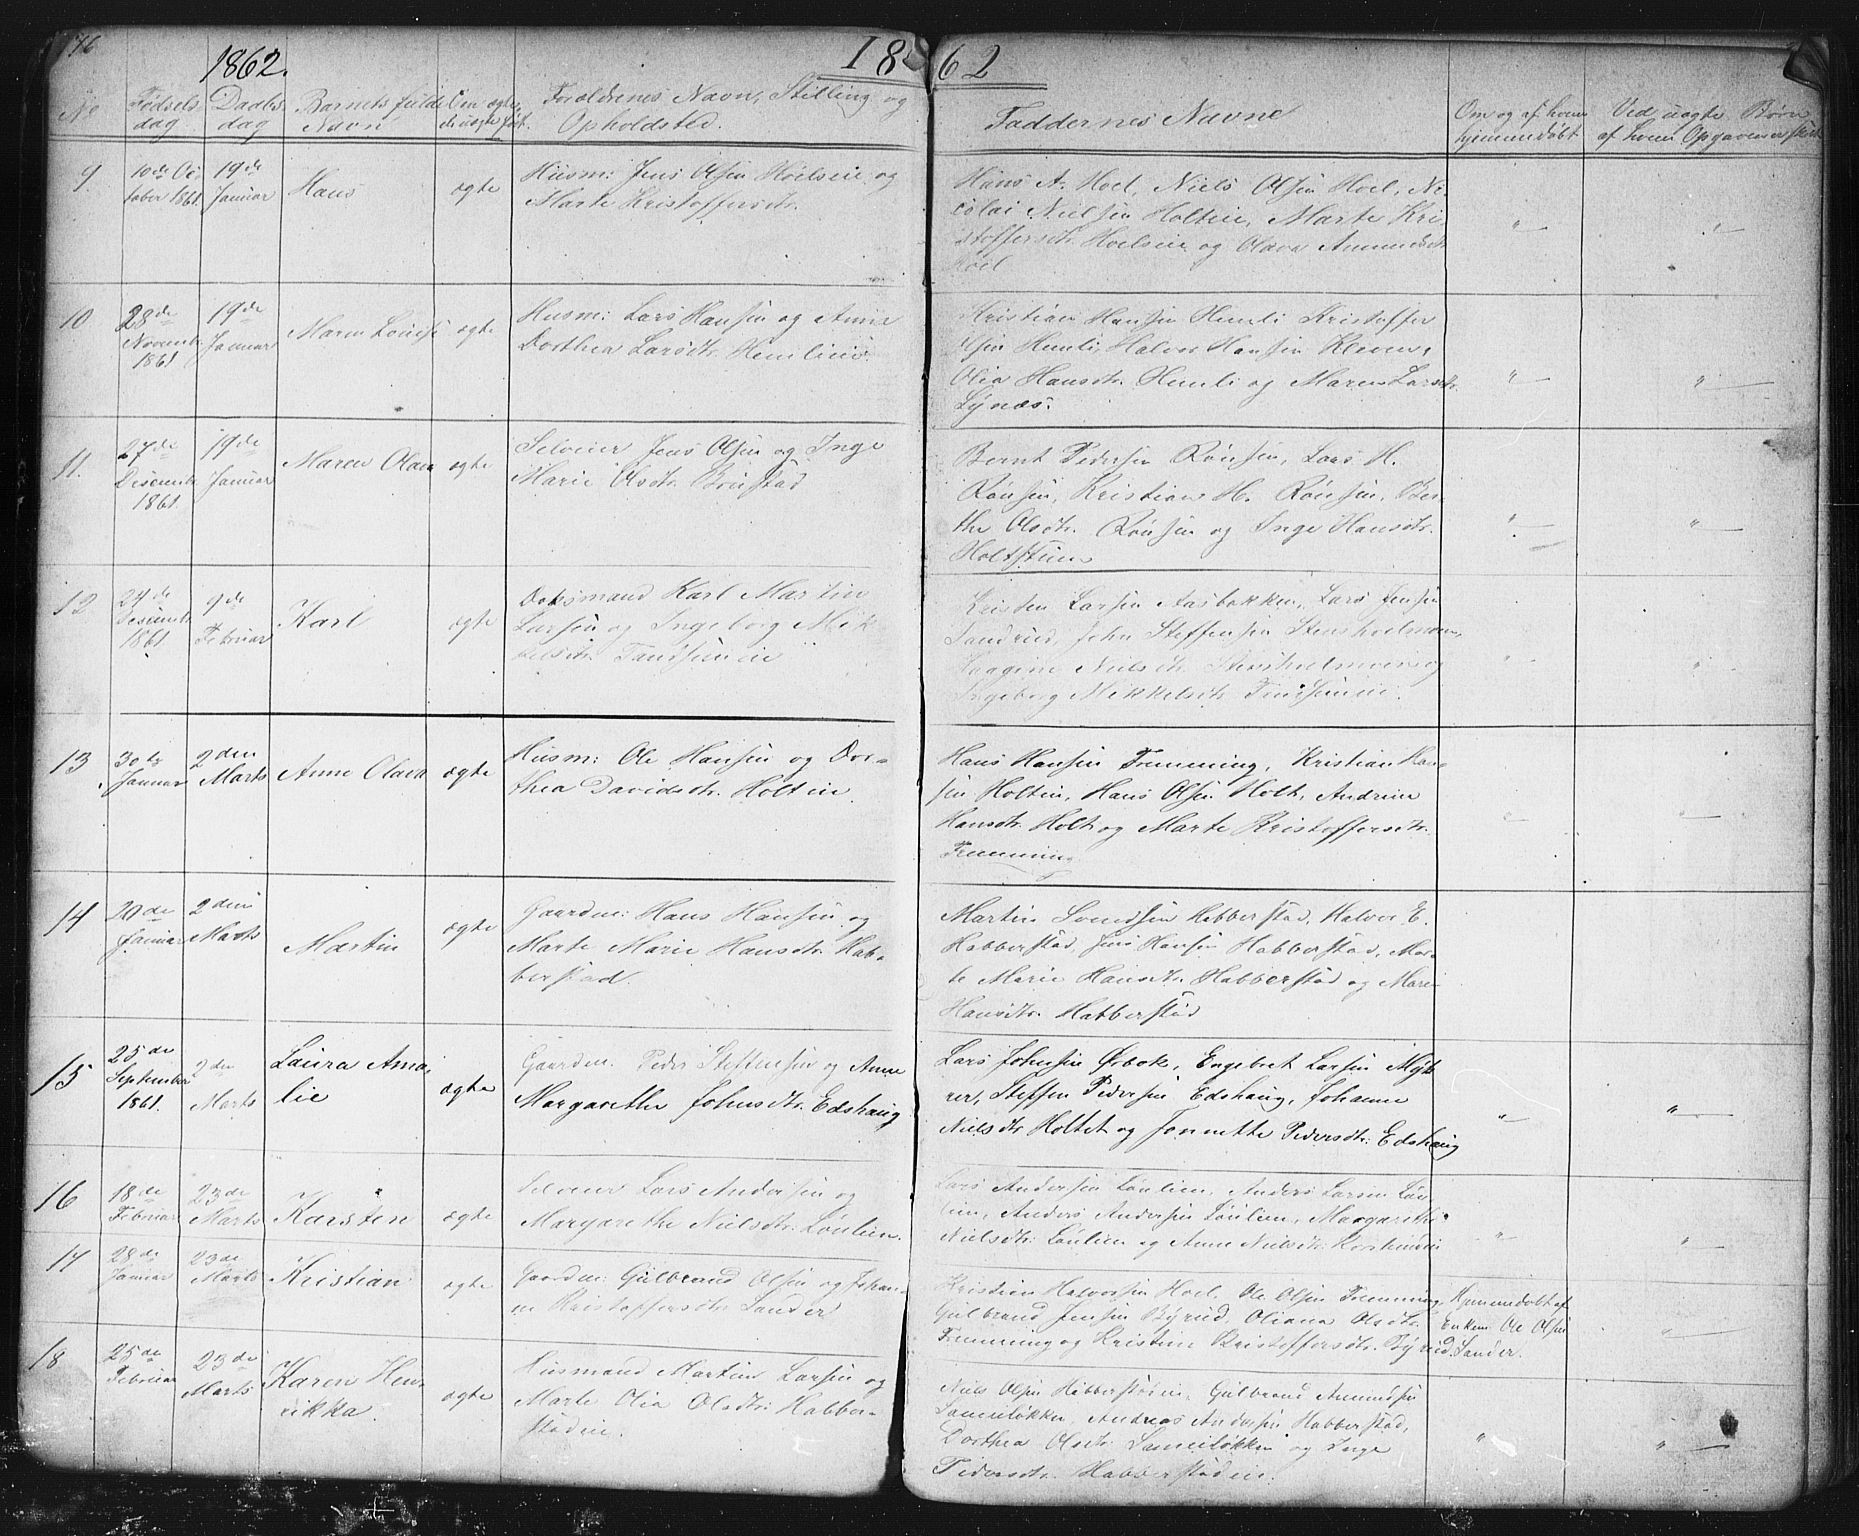 176
1862.
1862
No
Fødsels
dag
Daabs
dag
Barnets fulde
Navn
Om ægte
el. uægte født
Forældrenes Navn, Stilling og
Opholdsted.
Faddernes Navne
Om og af hvem
hjemmedøbt
Ved uægte Børn
af hvem Opgaven er skeet
9.
10de Oc
tober 1861.
19de
Januar
Hans
ægte
Husm: Jens Olsen Hoelseie og
Marte Kristoffersdtr.
Hans A. Hoel, Niels Olsen Hoel, Ni
colai Nielsen Holteie, Marte Kri
stoffersdtr. Hoelseie og Olava Amundsdtr
Hoel
10
28de
Novembr
1861
19de
Januar
Maren Lovise
ægte
Husm: Lars Hansen og Anne
Dorthea Larsdtr. Hemlieie
Kristian Hansen Hemli Kristoffer
Olsen Hemli, Halvor Hansen Kleven,
Olia Hansdtr. Hemli og Maren Larsdtr.
Lynæs.
11.
27de
Disembr
1861.
19de
Januar
Maren Olava
ægte
Selveier Jens Olsen og Inge
Marie Olsdtr. Bønstad
Bernt Pedersen Rønsen, Lars H.
Rønsen, Kristian H. Rønsen, Ber
the Olsdtr. Rønsen og Inge Hansdtr.
12
24de
Disembr
1861
9de
Februar
Karl
ægte
Karl Martin
Larsen og Ingeborg Mik
kelsdtr.
Kristen Larsen Aasbakken, Lars Jensen
Sandrud, John Steffensen
Nielsdtr. og
Ingeborg Mikkelsdtr.
13
30te
Januar
2den
Marts
Anne Olava
ægte
Husm: Ole Hansen og Dor-
thea Davidsdtr. Holteie.
Hans Hansen Fremming, Kristian Han-
sen Holteie, Hans Olsen Holt, Andrine
Hansdtr. Holt og Marte Kristoffersdtr.
Fremming
14
20de
Januar
2den
Marts
Martin
ægte
Gaardm: Hans Hansen og
Marte Marie Hansdtr. Hab-
berstad.
Martin Svendsen Habberstad, Halvor E.
Habberstad, Jens Hansen Habberstad, Mar-
te Marie Hansdtr. Habberstad og Maren
Hansdtr. Habberstad
15
25de
September
1861.
2den
Marts
Laura Ama-
lie
ægte
Gaardm. Peder Steffensen og Anne
Margarethe Johnsdtr. Edshaug
Lars Johnsen Ørbæk, Engebret Larsen
rer, Steffen Pedersen Edshaug, Johanne
Nielsdtr Holtet og Jonnette Pedersdtr: Edshaug
16
18de
Februar
23de
Marts
Karsten
ægte
Selveier Lars Andersen og
Margarethe Nielsdtr: Lønlien.
Lars Andersen Lønlien, Anders Larsen Løn-
lien, Anders Andersen Lønlien, Margarethe
Nielsdtr: Lønlien og Anne Nielsdtr:
17
28de
Januar
23de
Marts
Kristian
ægte
Gaardm: Gulbrand Olsen og Johan-
ne Kristoffersdtr. Sander
Kristian Halvorsen Hoel, Ole Olsen Fremming,
Gulbrand Jensen Byrud, Oliana Olsdtr.
Fremming og Kristine Kristoffersdtr. Byrud.
Hjemmedøbt af
Enkem. Ole Olsen
Sander.
18
25de
Februar
23de
Marts
Karen Hen-
rikka.
ægte
Husmand Martin Larsen og
Marte Olia Olsdtr: Habber-
stadeie.
Niels Olsen Habberstadeie, Gulbrand Amundsen
Sameiløkken, Andreas Andersen Habberstad,
Dorthea Olsdtr. Sameiløkken og Inge
Pedersdtr. Habberstadeie.